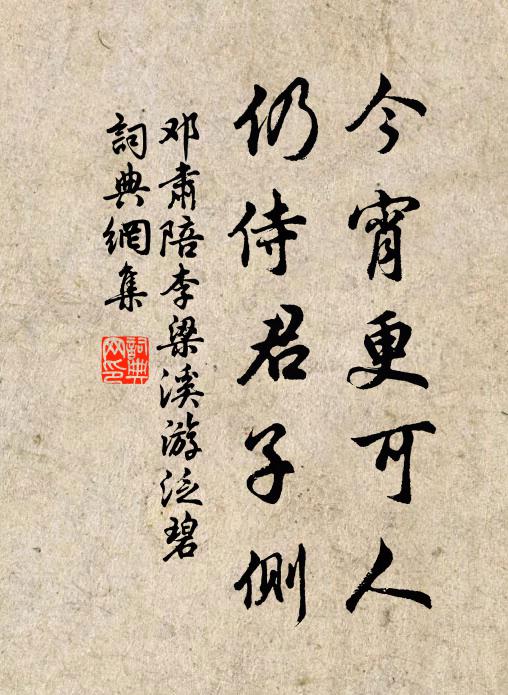 今宵更可人
仍侍君子側
邓肃陪李梁溪游泛碧
詞典網集
詞典網印